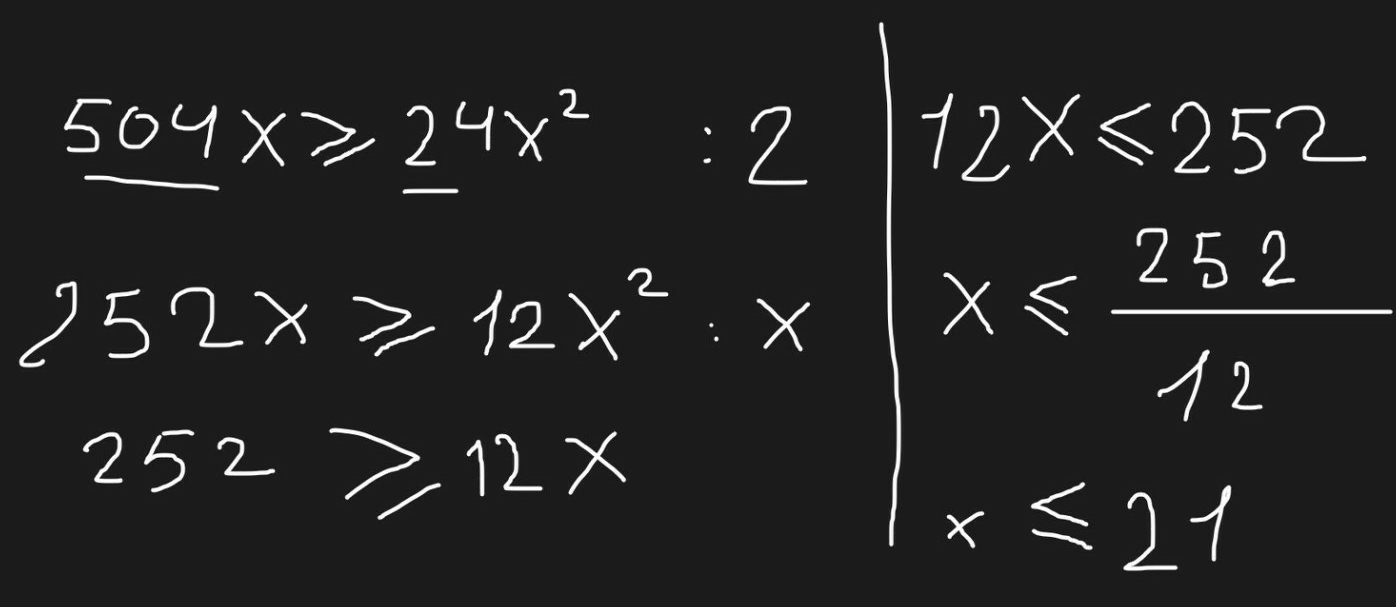 504x ⩾ 24x² :2
252x ⩾ 12x² : x
252 ⩾ 12x
12x ⩽ 252
x ⩽ 252/12
x ⩽ 21